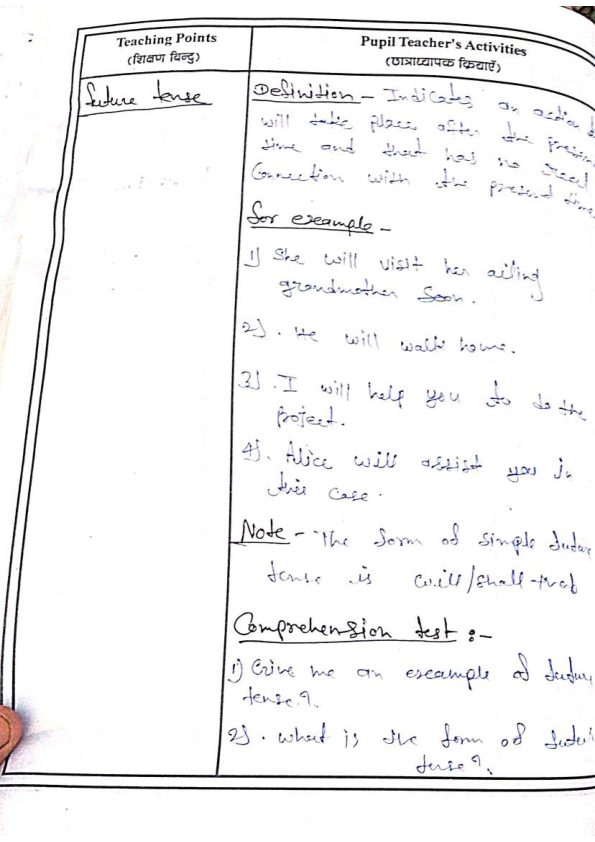 Teaching Points
(शिक्षण बिन्दु)
Pupil Teacher's Activities
(छात्राध्यापक क्रियाएँ)
future tense
Definition - Indicates an action
will take place after the present
time and that has no real
Connection with the present time
for example -
1) She will visit her ailing
grandmother soon.
2). He will walk home.
3). I will help you to do the
project.
4). Alice will assist you in
this case.
Note - The form of simple futur
tense is will/shall +
Comprehension test :-
1) Give me an example of future
tense?
2). What is the form of futur
tense?